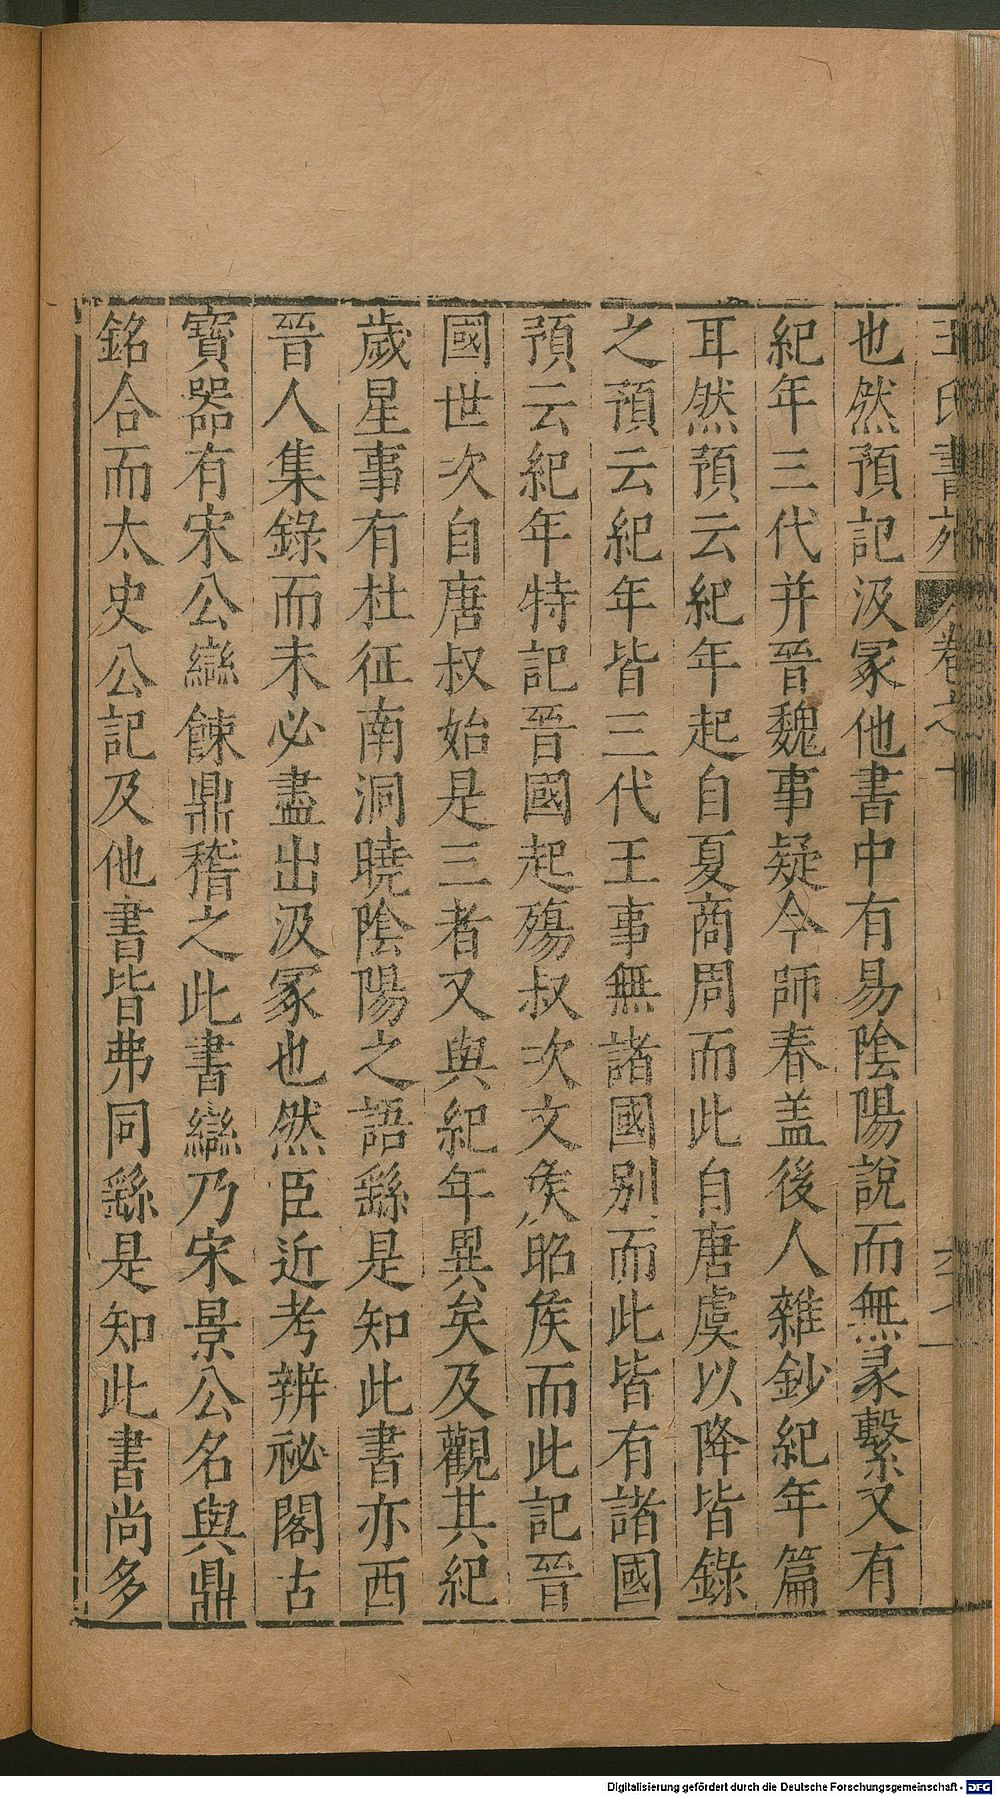 王氏書苑 卷之十 六十一
也然預記汲冢他書中有易陰陽說而無彖繫又有
紀年三代并晉魏事疑今師春盖後人雜鈔紀年篇
耳然預云紀年起自夏商周而此自唐虞以降皆錄
之預云紀年皆三代王事無諸國别而此皆有諸國
預云紀年特記晉國起殤叔次文矦昭矦而此記晉
國世次自唐叔始是三者又與紀年異矣及觀其紀
歲星事有杜征南洞曉陰陽之語繇是知此書亦西
晉人集錄而未必盡出汲冢也然臣近考辨祕閣古
寶器有宋公䜌餗鼎稽之此書䜌乃宋景公名與鼎
銘合而太史公記及他書皆弗同繇是知此書尚多
Digitalisierung gefördert durch die Deutsche Forschungsgemeinschaft - DFG